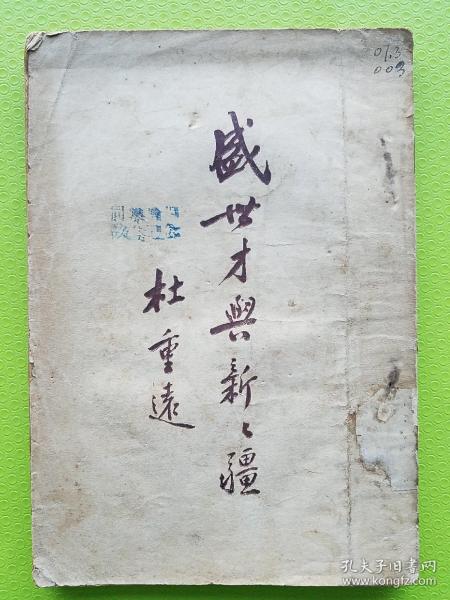 盛世才與新々疆
杜重遠
07.3
003
孔夫子旧书网
www.kongfz.com